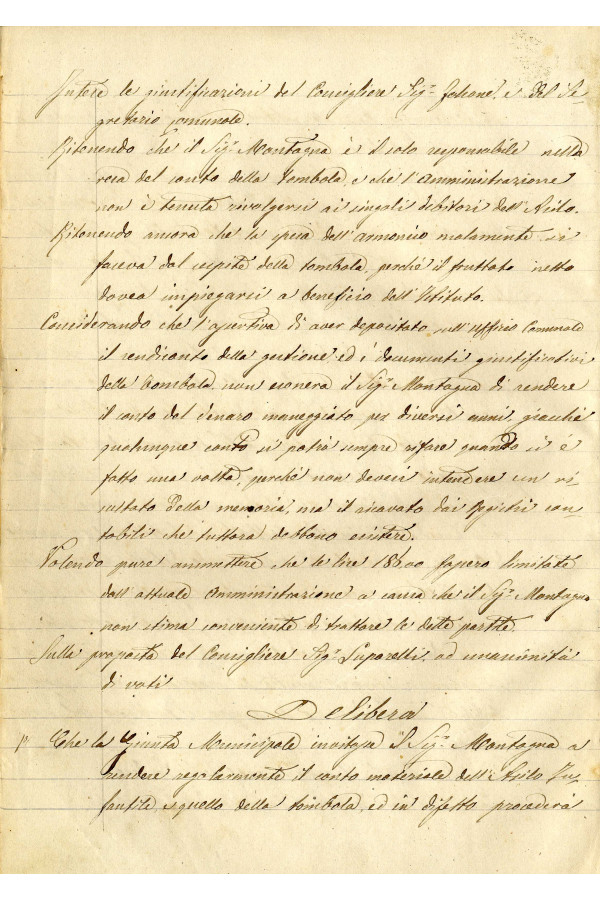 Intese le giustificazioni del Consigliere Sig.r Falcone, e del Se-
gretario Comunale.
Ritenendo che il Sig.r Montagna è il solo responsabile nella
resa del conto della tombola, e che l'Amministrazione
non è tenuta rivolgersi ai singoli debitori dell'Asilo.
Ritenendo ancora che la spesa dell'armonico malamente si
faceva dal cespite della tombola, perché il fruttato netto
dovea impiegarsi a beneficio dell'Istituto.
Considerando che l'assertiva di aver depositato nell'Uffizio Comunale
il rendiconto della gestione ed i documenti giustificativi
della Tombola, non esonera il Sig.r Montagna di rendere
il conto del denaro maneggiato per diversi anni, giacché
qualunque conto si potrà sempre rifare quando si è
fatto una volta, perché non devesi intendere un ri-
sultato della memoria, ma il ricavato dai Registri con-
tabili che tuttora debbono esistere.
Volendo pure ammettere che le lire fossero limitate
dall'attuale Amministrazione a causa che il Sig.r Montagna
non stima conveniente di trattare le dette partite.
Sulla proposta del Consigliere Sig.r Luparelli, ad unanimità
di voti
Delibera
1° Che la Giunta Municipale invitasse il Sig.r Montagna a
rendere regolarmente il conto materiale dell'Asilo In-
fantile, e quello della tombola, ed in difetto procederà